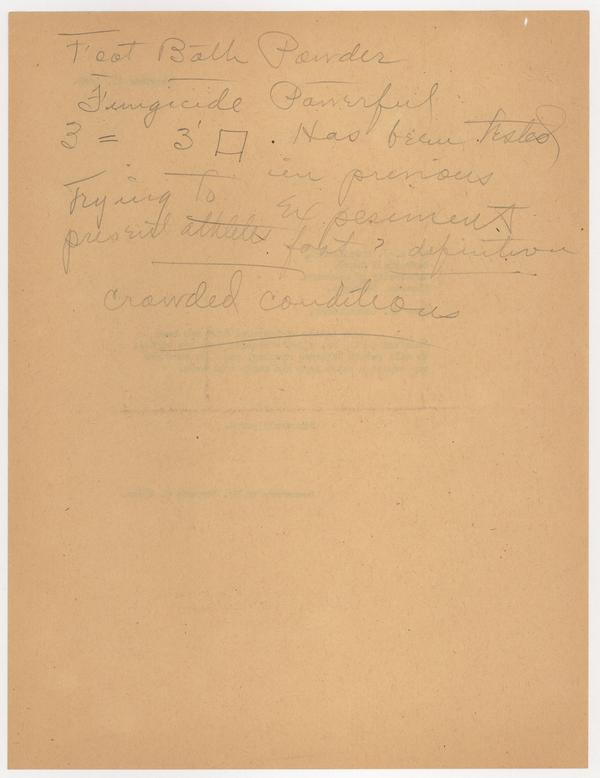 Foot Bath Powder
Fungicide Powerful
3 = 3' □ . Has been tested
in previous
Trying to Experiment
present athletes foot? definition
crowded conditions